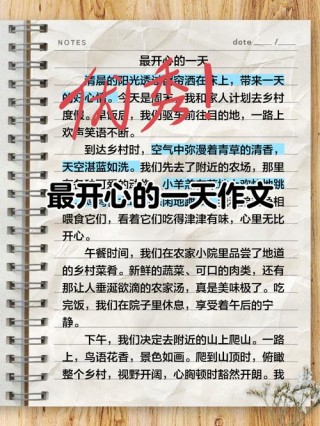 NOTES
date
最开心的一天
清晨的阳光透过窗帘洒在床上，带来一天
的好心情。今天是周末，我和家人计划去乡村
度假。早饭后，我们驱车前往目的地，一路上
欢声笑语不断。
优秀!
到达乡村时，空气中弥漫着青草的清香，
天空湛蓝如洗。我们先去了附近的农场，那里
小羊
地跳
最开心的一天作文
相
喂食它们，看着它们吃得津津有味，心里无比
开心。
午餐时间，我们在农家小院里品尝了地道
的乡村菜肴。新鲜的蔬菜、可口的肉类，还有
那让人垂涎欲滴的农家汤，真是美味极了。吃
完饭，我们在院子里休息，享受着午后的宁
静。
下午，我们决定去附近的山上爬山。一路
上，鸟语花香，景色如画。爬到山顶时，俯瞰
整个乡村，视野开阔，心胸顿时豁然开朗。我